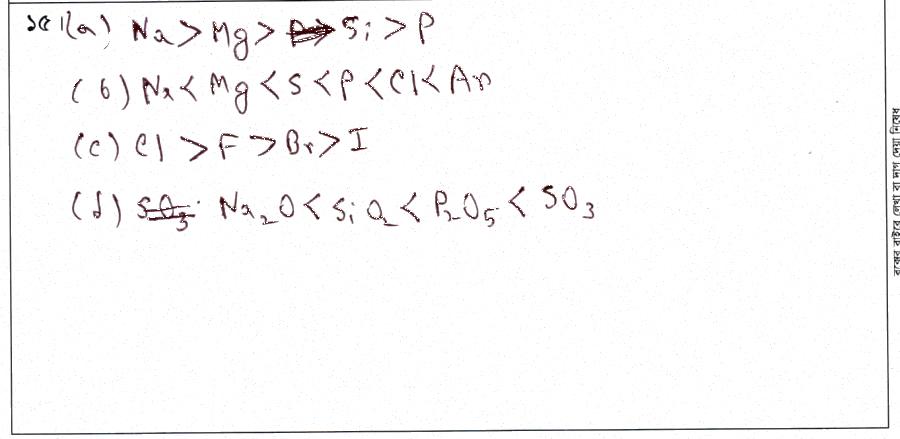 ১৫।(a) Na > Mg > Si > P
(b) Na < Mg < S < P < Cl < Ar
(c) Cl > F > Br > I
(d) SO3 Na2O < SiO2 < P2O5 < SO3
বক্সের বাইরে লেখা বা দাগ দেয়া নিষেধ